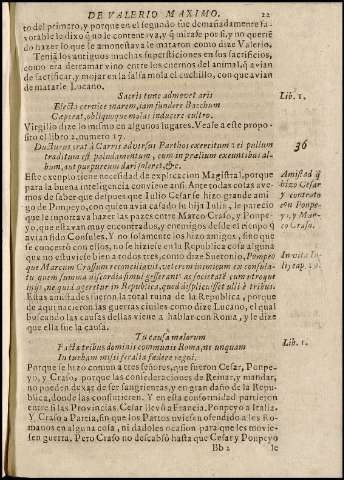 DE VALERIO MAXIMO. 22
to del primero, y porque en el segundo fue demasiadamente fa-
vorable lo dixo q̃ no le contentava, y q̃ mirasse por si, y no querie
do hazer lo que se amonestava le mataron como dize Valerio.
Tenia los antiguos muchas supersticiones en sus sacrificios,
como era derramar vino entre los cuernos del animal, q̃ avian
de sacrificar, y mojar en la salsa mola el cuchillo, con que avian
de matarle Lucano.
Sacris tunc admovet aris Lib. 1.
Electa cervice marem, iam fundere Bacchum
Cœperat, obliquoque molas inducere cultro.
Virgilio dize lo mismo en algunos lugares. Vease a este propo-
sito el libro 2. numero 17.
Ducturus erat à Carris adversus Parthos exercitum 36
traditum est paludamentum, cum in prælium exeuntibus al-
bum, aut purpureum dari soleret, &c.
Este exenplo tiene necessidad de explicacion Magistral, porque Amistad q̃
para la buena inteligencia conviene ansi. Ante todas cosas ave- hizo Cesar
mos de saber que despues que Iulio Cesar se hizo grande ami- y contrato
go de Ponpeyo, con quien avia casado su hija Iulia, le parecio con Ponpe-
que le inportava hazer las pazes entre Marco Craso, y Ponpe- yo, y Mar-
yo, que estavan muy encontrados, y enemigos desde el tienpo q̃ co Craso.
avian sido Consules. Y no solamente los hizo amigos, sino que
se concertó con ellos, no se hiziese en la Republica cosa alguna
que no estuviese bien a todos tres, como dize Suetonio, Pompeo
que Marcum Crassum reconciliavit, veterem inimicum ex consula-
tu quem summa discordia simul gesserant: ac societatem cum utroque
inijt, ne quid ageretur in Republica, quod displicuisset ulli è tribus.
Estas amistades fueron la total ruina de la Republica, porque
de aqui nacieron las guerras civiles como dize Lucano, el qual
buscando las causas dellas viene a hablar con Roma, y le dize
que ella fue la causa.
Tu causa malorum
Facta tribus dominis communis Roma, nec unquam Lib. 1.
In turbam missi feralia fœdera regni.
Porque se hizo comun a tres señores, que fueron Cesar, Ponpe-
yo, y Craso, porque las confederaciones de Reinar, y mandar,
no pueden dexar de ser sangrientas, y en gran daño de la Repu-
blica, donde las consintieren. Y en esta conformidad partieron
entre si las Provincias. Cesar llevó a Francia. Ponpeyo a Italia.
Y Craso a Partia, sin que los Partos uviesen ofendido a los Ro-
manos en alguna cosa, ni dadoles ocasion para que les movie-
sen guerra. Pero Craso no descansò hasta que Cesar y Ponpeyo
Bb 2 le